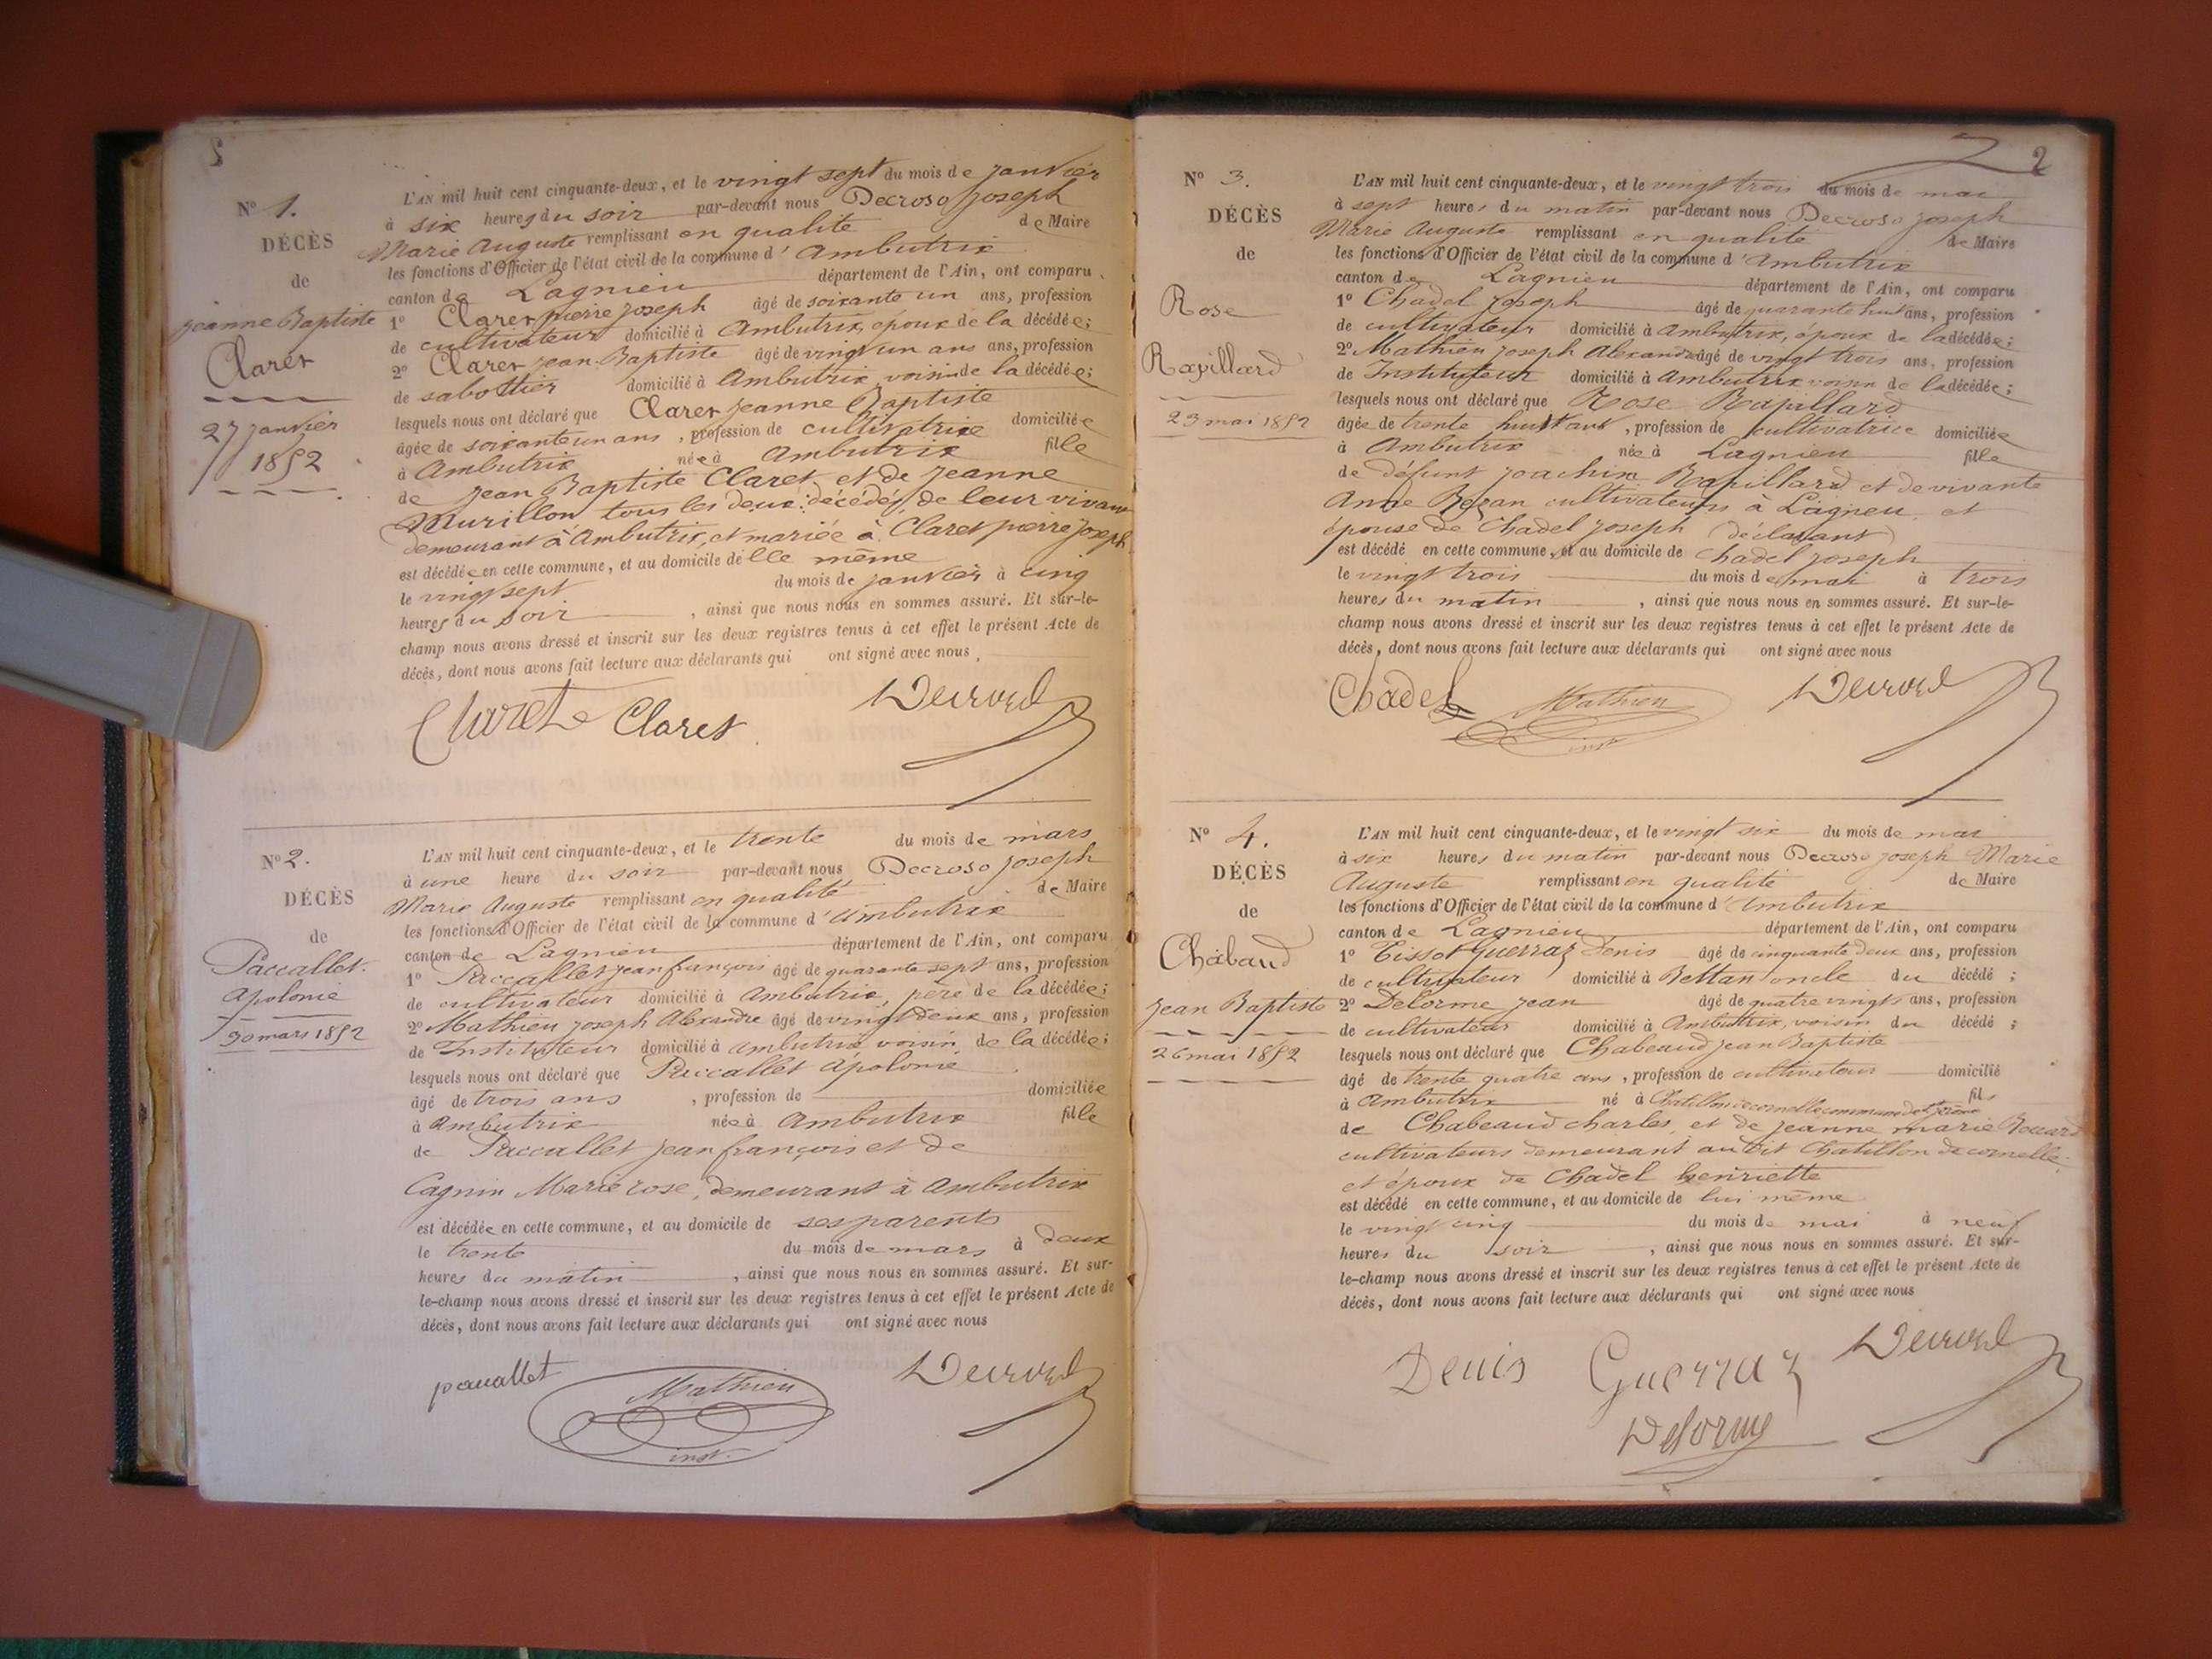 N° 1.
DÉCÈS
de
jeanne Baptiste
Claret
27 janvier
1852
L'AN mil huit cent cinquante-deux, et le vingt sept du mois de janvier
à six heures du soir par-devant nous Decroso joseph
Marie Auguste remplissant en qualité de Maire
les fonctions d'Officier de l'état civil de la commune d'Ambutrix
canton de Lagnieu département de l'Ain, ont comparu
1° Claret pierre joseph âgé de soixante un ans, profession
de cultivateur domicilié à Ambutrix, époux de la décédée;
2° Claret jean Baptiste âgé de vingt un ans ans, profession
de sabottier domicilié à Ambutrix voisin de la décédée;
lesquels nous ont déclaré que Claret jeanne Baptiste
âgée de soixante un ans, profession de cultivatrice domiciliée
à Ambutrix née à Ambutrix fille
de jean Baptiste Claret et de jeanne
Murillon tous les deux décédés, de leur vivant
demeurant à Ambutrix, et mariée à Claret pierre joseph
est décédée en cette commune, et au domicile de lle même
le vingt sept du mois de janvier à cinq
heures du soir, ainsi que nous nous en sommes assuré. Et sur-le-
champ nous avons dressé et inscrit sur les deux registres tenus à cet effet le présent Acte de
décès, dont nous avons fait lecture aux déclarants qui ont signé avec nous.
Claret Claret
N° 2.
DÉCÈS
de
Paccallet.
Apolonie
30 mars 1852
L'AN mil huit cent cinquante-deux, et le trente du mois de mars
à une heure du soir par-devant nous Decroso joseph
Marie Auguste remplissant en qualité de Maire
les fonctions d'Officier de l'état civil de la commune d'Ambutrix
canton de Lagnieu département de l'Ain, ont comparu
1° Paccallet jean françois âgé de quarante sept ans, profession
de cultivateur domicilié à Ambutrix, père de la décédée;
2° Mathieu joseph Alexandre âgé de vingt deux ans, profession
de Instituteur domicilié à Ambutrix voisin de la décédée;
lesquels nous ont déclaré que Paccallet Apolonie
âgé de trois ans, profession de domiciliée
à Ambutrix née à Ambutrix fille
de Paccallet jean françois et de
Cagnin Marie rose, demeurant à Ambutrix
est décédée en cette commune, et au domicile de ses parents
le trente du mois de mars à deux
heures du matin, ainsi que nous nous en sommes assuré. Et sur-
le-champ nous avons dressé et inscrit sur les deux registres tenus à cet effet le présent Acte de
décès, dont nous avons fait lecture aux déclarants qui ont signé avec nous
paccallet Mathieu
inst.
2
N° 3.
DÉCÈS
de
Rose
Rapillard
23 mai 1852
L'AN mil huit cent cinquante-deux, et le vingt trois du mois de mai
à sept heures du matin par-devant nous Decroso joseph
Marie Auguste remplissant en qualité de Maire
les fonctions d'Officier de l'état civil de la commune d'Ambutrix
canton de Lagnieu département de l'Ain, ont comparu
1° Chadel joseph âgé de quarante huit ans, profession
de cultivateur domicilié à Ambutrix, époux de la décédée;
2° Mathieu joseph Alexandre âgé de vingt trois ans, profession
de Instituteur domicilié à Ambutrix voisin de la décédée;
lesquels nous ont déclaré que Rose Rapillard
âgée de trente huit ans, profession de cultivatrice domiciliée
à Ambutrix née à Lagnieu fille
de défunt joachim Rapillard et de vivante
Anne cultivateurs à Lagneu, et
épouse de Chadel joseph (déclarant)
est décédé en cette commune, et au domicile de Chadel joseph
le vingt trois du mois de mai à trois
heures du matin, ainsi que nous nous en sommes assuré. Et sur-le-
champ nous avons dressé et inscrit sur les deux registres tenus à cet effet le présent Acte de
décès, dont nous avons fait lecture aux déclarants qui ont signé avec nous
Chadel Mathieu
inst
N° 4.
DÉCÈS
de
Chabaud
jean Baptiste
26 mai 1852
L'AN mil huit cent cinquante-deux, et le vingt six du mois de mai
à six heures du matin par-devant nous Decroso joseph Marie
Auguste remplissant en qualité de Maire
les fonctions d'Officier de l'état civil de la commune d'Ambutrix
canton de Lagnieu département de l'Ain, ont comparu
1° Tissot Guerraz Denis âgé de cinquante deux ans, profession
de cultivateur domicilié à Bettant oncle du décédé;
2° Delorme jean âgé de quatre vingts ans, profession
de cultivateur domicilié à Ambutrix, voisin du décédé;
lesquels nous ont déclaré que Chabeaud jean Baptiste
âgé de trente quatre ans, profession de cultivateur domicilié
à Ambutrix né à Chatillon de cornelle commune de st jérôme fils
de Chabeaud charles, et de jeanne marie
cultivateurs demeurant au dit Chatillon de cornelle,
et époux de Chadel henriette
est décédé en cette commune, et au domicile de lui même
le vingt cinq du mois de mai à neuf
heures du soir, ainsi que nous nous en sommes assuré. Et sur-
le-champ nous avons dressé et inscrit sur les deux registres tenus à cet effet le présent Acte de
décès, dont nous avons fait lecture aux déclarants qui ont signé avec nous
Denis Guerraz
Delorme